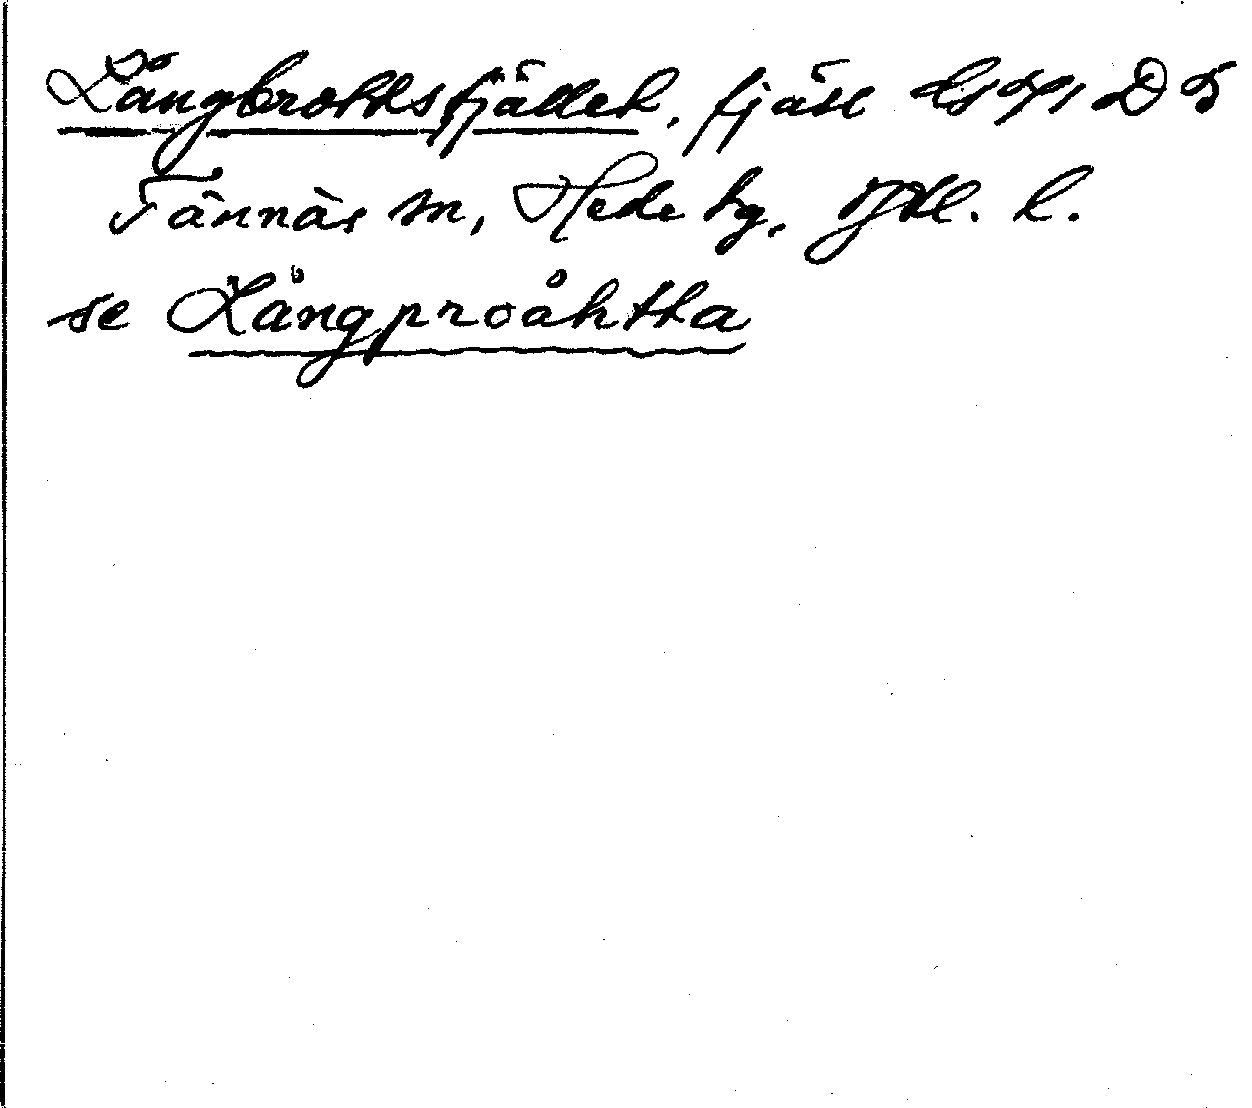 Långbrottsfjället, fjäll
Tännäs sn, Hede hg. Jtl. l.
se Långproåhtta